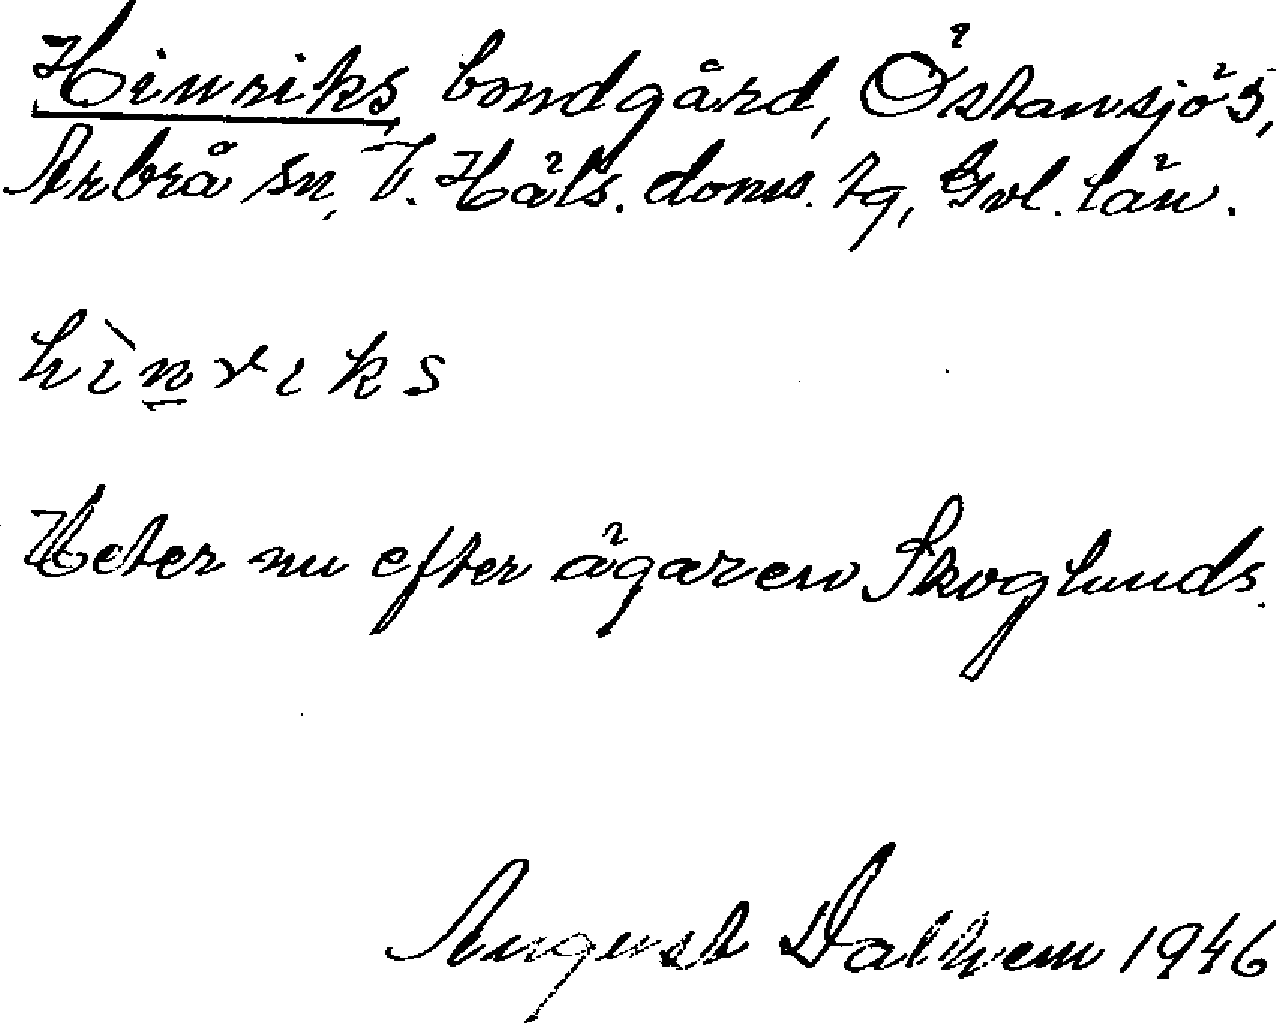 Hinriks, bondgård, Östansjö 5,
Arbrå sn, V. Häls. doms. tg, Gvl. län.
hìn̲riks
Heter nu efter ägaren Skoglunds.
August Dalhem 1946